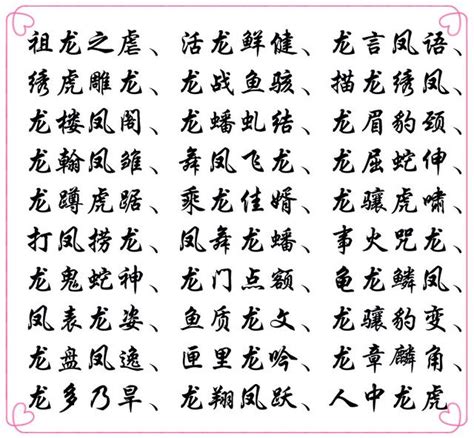 祖龙之虐、 活龙鲜健、 龙言凤语、
绣虎雕龙、 龙战鱼骇、 描龙绣凤、
龙楼凤阁、 龙蟠虬结、 龙眉豹颈、
龙翰凤雏、 舞凤飞龙、 龙屈蛇伸、
龙蹲虎踞、 乘龙佳婿、 龙骧虎啸、
打凤捞龙、 凤舞龙蟠、 事火咒龙、
龙鬼蛇神、 龙门点额、 龟龙鳞凤、
凤表龙姿、 鱼质龙文、 龙骧豹变、
龙盘凤逸、 匣里龙吟、 龙章麟角、
龙多乃旱、 龙翔凤跃、 人中龙虎